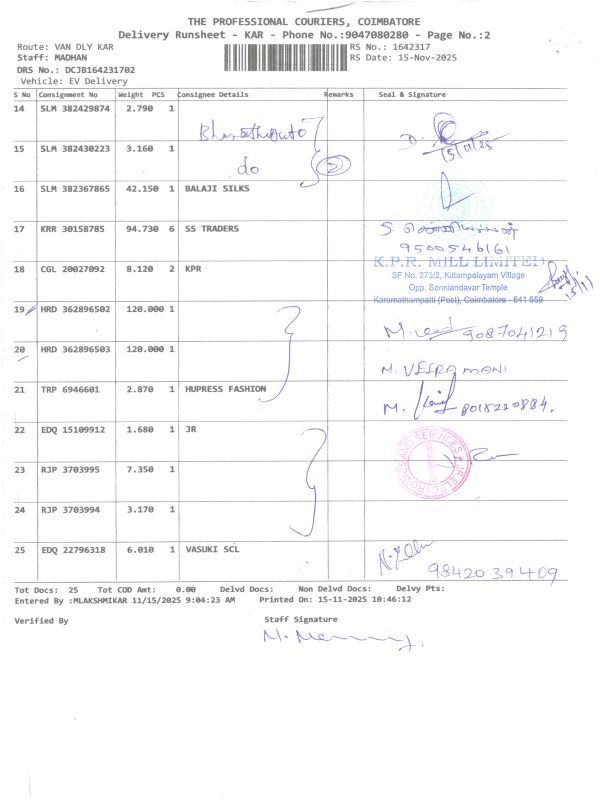 THE PROFESSIONAL COURIERS, COIMBATORE
Delivery Runsheet - KAR - Phone No.:9047080280 - Page No.:2
Route: VAN DLY KAR
Staff: MADHAN
DRS No.: DCJB164231702
Vehicle: EV Delivery
RS No.: 1642317
RS Date: 15-Nov-2025
S No Consignment No Weight PCS Consignee Details Remarks Seal & Signature
14 SLM 382429874 2.790 1
15/11/25
15 SLM 382430223 3.160 1 do 2
16 SLM 382367865 42.150 1 BALAJI SILKS
17 KRR 30158785 94.730 6 SS TRADERS
9500546161
18 CGL 20027092 8.120 2 KPR
K.P.R. MILL LIMITED
SF No. 273/2, Kittampalayam Village
Opp. Senniandavar Temple
Karumathampatti (Post), Coimbatore - 641 659
15/11
19 HRD 362896502 120.000 1
M. 9087041219
20 HRD 362896503 120.000 1
M. VEERAMANI
21 TRP 6946601 2.870 1 HUPRESS FASHION
M. 8018220884.
22 EDQ 15109912 1.680 1 JR
23 RJP 3703995 7.350 1
24 RJP 3703994 3.170 1
25 EDQ 22796318 6.010 1 VASUKI SCL
9842039409
Tot Docs: 25 Tot COD Amt: 0.00 Delvd Docs: Non Delvd Docs: Delvy Pts:
Entered By :MLAKSHMIKAR 11/15/2025 9:04:23 AM Printed On: 15-11-2025 10:46:12
Verified By
Staff Signature